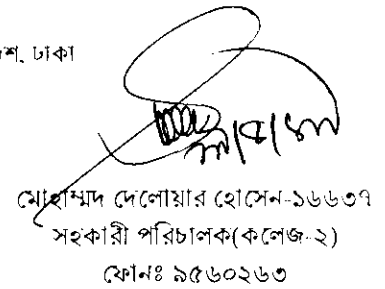 শ, ঢাকা
মোহাম্মদ দেলোয়ার হোসেন-১৬৬৩৭
সহকারী পরিচালক(কলেজ-২)
ফোনঃ ৯৫৬০২৬৩